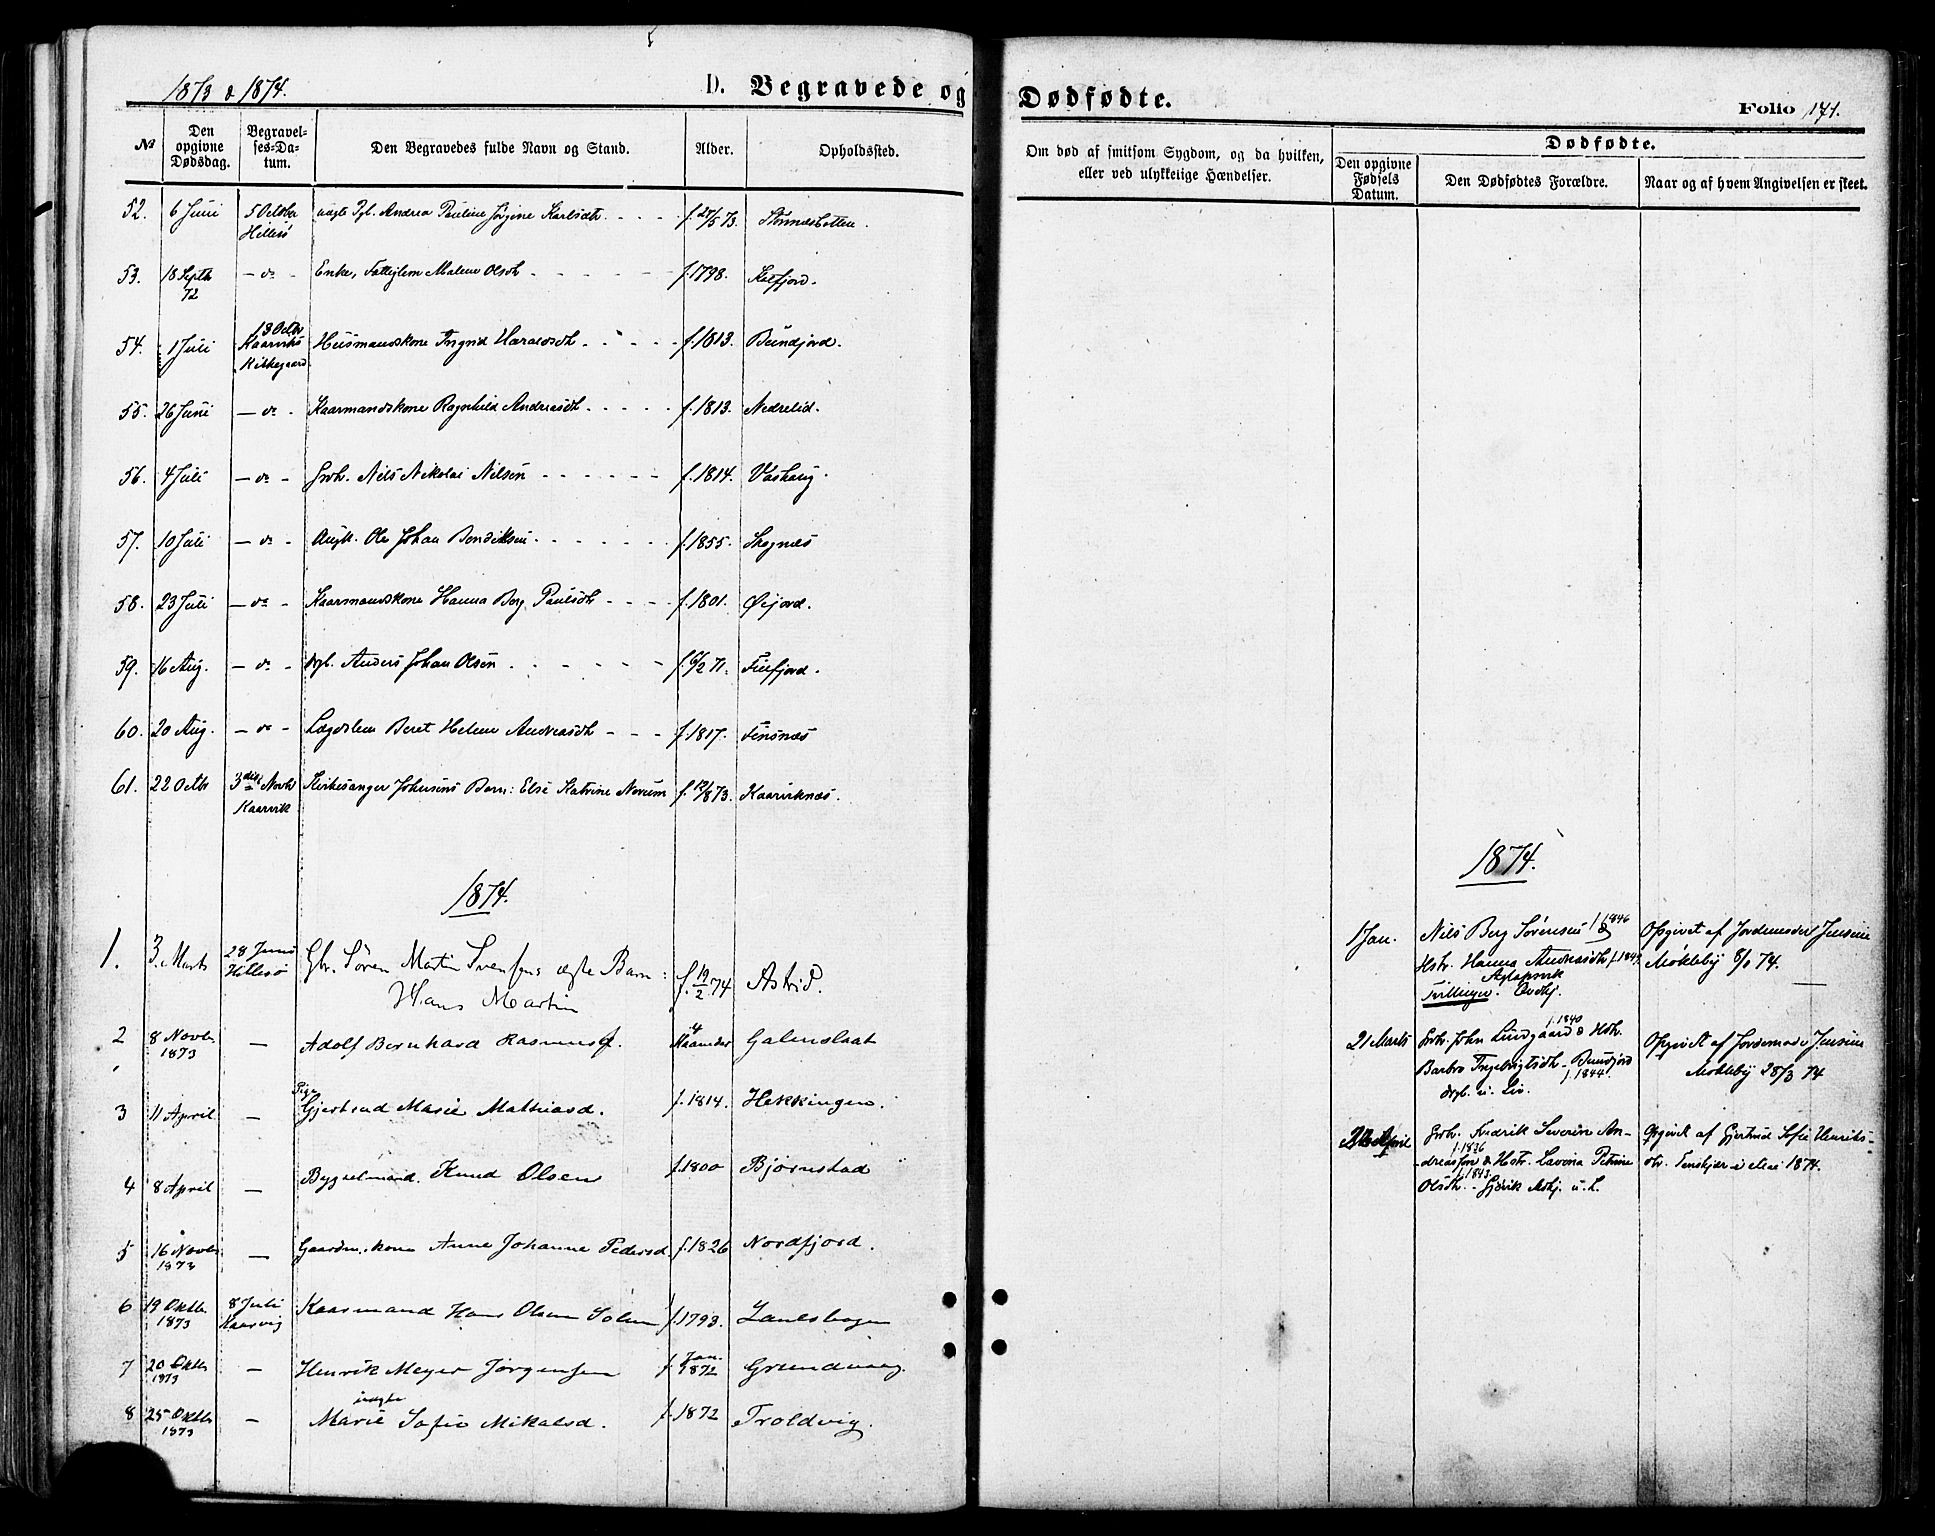 1873 & 1874.
D. Begravede og
Dødfødte.
Folio 171.
№
Den opgivne Dødsdag.
Begravelses-Datum.
Den Begravedes fulde Navn og Stand.
Alder.
Opholdssted.
Om død af smitsom Sygdom, og da hvilken,
eller ved ulykkelige Hændelser.
Dødfødte.
Den opgivne Fødsels Datum.
Den Dødfødtes Forældre.
Naar og af hvem Angivelsen er skeet.
52. 6 Juni 5 October Hillesø uægte Pgl. Andrea Pauline Jørgine Karlsdtr. f. 27/5 73.
53. 18 Septbr 72 — do - Enke, Fattiglem Malene Olsdtr f. 1798. Kalfjord.
54. 1 Juli 13 Octbr Kaarviks Kirkegaard Husmandskone Ingrid Haraldsdtr f. 1813. Bundjord.
55. 26 Juni — do - Kaarmandskone Ragnhild Andreasdtr f. 1813. Nedrelid.
56. 4 Juli — do - Grbr. Nils Nikolai Nilsen f. 1814. Vashaug.
57. 10 Juli — do - Ungk. Ole Johan Bendiksen f. 1855. Skognæs
58. 23 Juli — do - Kaarmandskone Hanna Berg Paulsdtr f. 1801. Øijord.
59. 16 Aug. — do - Drgl. Anders Johan Olsen f. 6/2 71. Finfjord.
60. 20 Aug. — do - Lægdslem Beret Helene Andreasdtr f. 1817. Finsnæs
61. 22 Octbr 3die Novbr Kaarvik Kirkesanger Johnsens Barn: Else Katrine Novum f. 12/8 73. Kaarviknæs.
1874.
1. 3 Marts 28 Juni Hillesø Gbr. Sören Martin Svensens ægte Barn: Hans Martin f. 19/2 74 Astrid.
2 8 Novbr 1873 — Adolf Bernhard Rasmussen. 4 Maaneder
3 11 April — Pige Gjertrud Marie Mathiasd. f. 1814. Hekkingen.
4 8 April — Bygselmand Knud Olsen f. 1800 Bjørnstad
5 16 Novbr 1873 — Gaardm. kone Anne Johanne Pedersd. f. 1826 Nordfjord.
6 19 Oktbr 1873 8 Juli Kaarvig Kaarmand Hans Olsen f. 1793. Lanesbogen
7 20 Oktbr 1873 — Henrik Meyer Jørgensen f. Jan. 1872 Grundvaag.
8 25 Oktbr 1873 — uægte Marie Sofie Mikalsd. f. 1872 Troldvig.
1874.
1 Jan. Nils Berg Sörensen f. 1846 & Hstr. Hanna Andreasdtr f. 1849 Aglapsvik Tvillinger.
Opgivet af Jordemoder Jensine Mökleby 8/1 74.
21 Marts Grbr. John Lundgaard f. 1840 & Hstr. Barbro Ingebrigtsdtr - Bundjord f. 1844. Drgb. u. Liv.
Opgivet af Jordemoder Jensine Mökleby 28/3 74
April Grbr. Fredrik Severin Andreassen f. 1836 & Hstr. Lavina Petrine Olsdtr. f. 1843 - Gjövik u. L.
Opgivet af Gjertrud Sofie Henriksdtr. 1874.